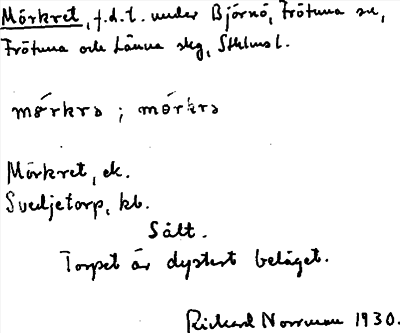 Mörkret, f.d.t. under Björnö, Frötuna sn,
Frötuna och Länna skg, Sthlms l.
mǿrkrə ; mørkrə
Mörkret, ek.
Svedjetorp, kb.
Sålt.
Torpet är dystert beläget.
Rickard Norrman 1930.